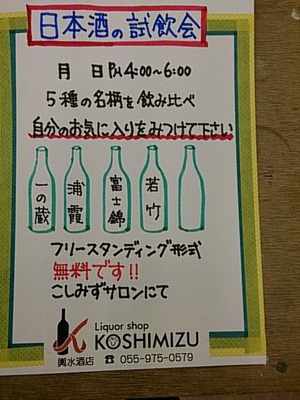 日本酒の試飲会
月 日 PM 4:00~6:00
5種の名柄を飲み比べ
自分のお気に入りをみつけて下さい
一の蔵
浦霞
富士錦
若竹
フリースタンディング形式
無料です!!
こしみずサロンにて
Liquor shop
KOSHIMIZU
輿水酒店 ☎ 055-975-0579